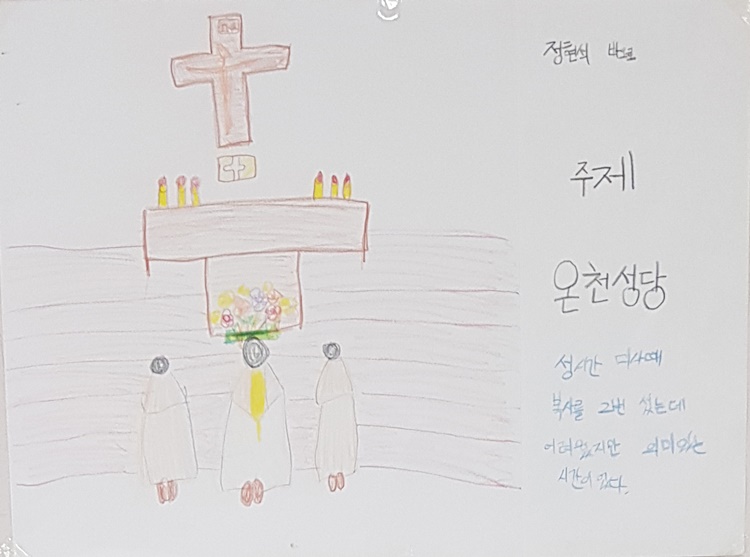 정현석
주제
온천성당
성시간 미사때
복사를 2번 섰는데
어려웠지만 의미있는
시간이였다.